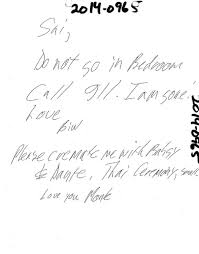 2014-0965
Sai,
Do not go in Bedroom
Call 911. I am gone
Love
Biw
Please cremate me with Patsy
& Dante, Thai Ceremony, small
Love you
2014-0965